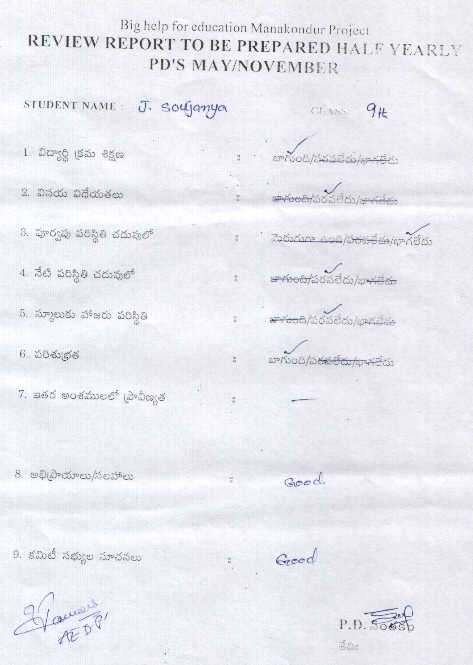 Big help for education Manakondur Project
REVIEW REPORT TO BE PREPARED HALF YEARLY
PD'S MAY/NOVEMBER
STUDENT NAME : J. Soujanya CLASS 9th
1. విద్యార్థి క్రమ శిక్షణ : బాగుంది/పరవలేదు/బాగలేదు
2. వినయ విధేయతలు : బాగుంది/పరవలేదు/బాగలేదు
3. పూర్వపు పరిస్థితి చదువులో : మెరుగుగా ఉంది/పరవలేదు/బాగలేదు
4. నేటి పరిస్థితి చదువులో : బాగుంది/పరవలేదు/బాగలేదు
5. స్కూలుకు హాజరు పరిస్థితి : బాగుంది/పరవలేదు/బాగలేదు
6. పరిశుభ్రత : బాగుంది/పరవలేదు/బాగలేదు
7. ఇతర అంశములలో ప్రావీణ్యత : —
8. అభిప్రాయాలు/సలహాలు : Good.
9. కమిటీ సభ్యుల సూచనలు : Good
AEDP
P.D. సంతకం
తేమిః